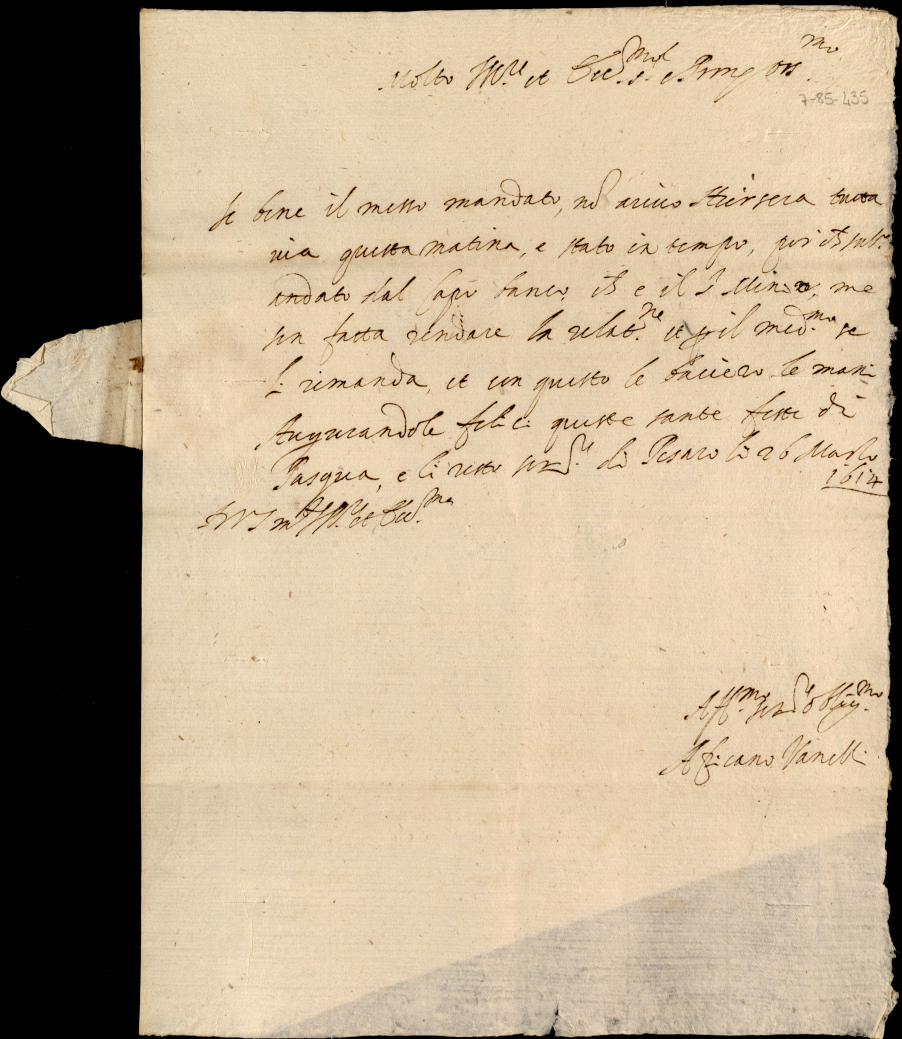 Molto Ill.re et Ecc.mo S.r e Pron oss.mo
7-85-435
Se bene il messo mandato, nō arivo Hiersera tutta
via questa matina, e stato in tempo, poi ch subt.o
andato dal Capo ch e il S.r me
son fatta rendare la relat.ne et p il med.mo se
li rimanda, et con questo le baciero le mani
Augurandole felici queste sante feste di
Pasqua, e li resto ser.re di Pesaro li 26 Marzo
1614
D V S m.to Ill.re et Ecc.ma
Aff.mo ser.re oblig.mo
Africano Vanelli